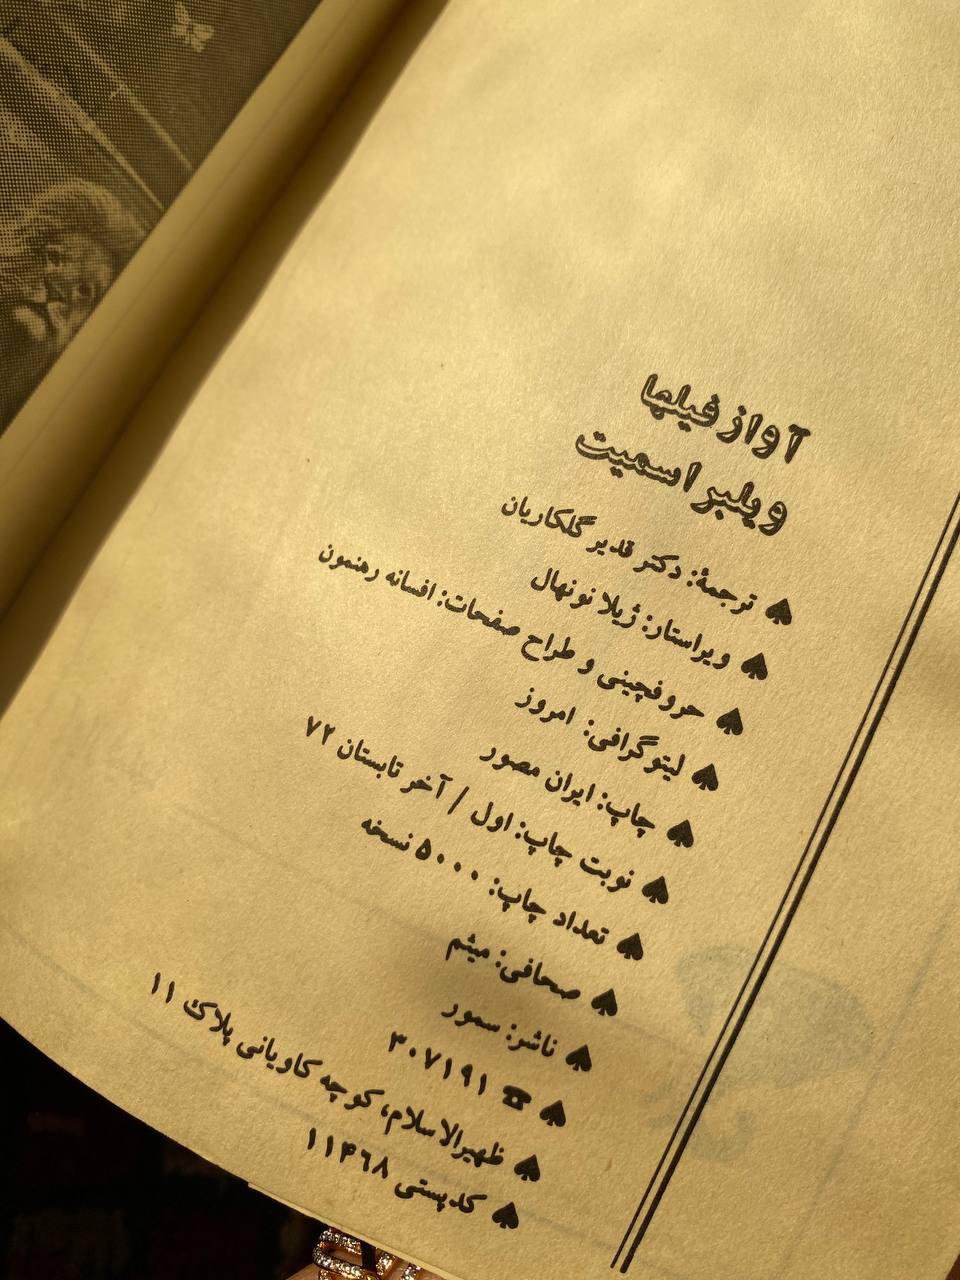 آواز فیلها
ویلبر اسمیت
♠ ترجمهٔ: دکتر قدیر گلکاریان
♠ ویراستار: ژیلا نونهال
♠ حروفچینی و طراح صفحات: افسانه رهنمون
♠ لیتوگرافی: امروز
♠ چاپ: ایران مصور
♠ نوبت چاپ: اول / آخر تابستان ۷۲
♠ تعداد چاپ: ۵۰۰۰ نسخه
♠ صحافی: میثم
♠ ناشر: سمور
♠ ☎ ۳۰۷۱۹۱
♠ ظهیرالاسلام، کوچه کاویانی پلاک ۱۱
♠ کدپستی ۱۱۴۶۸